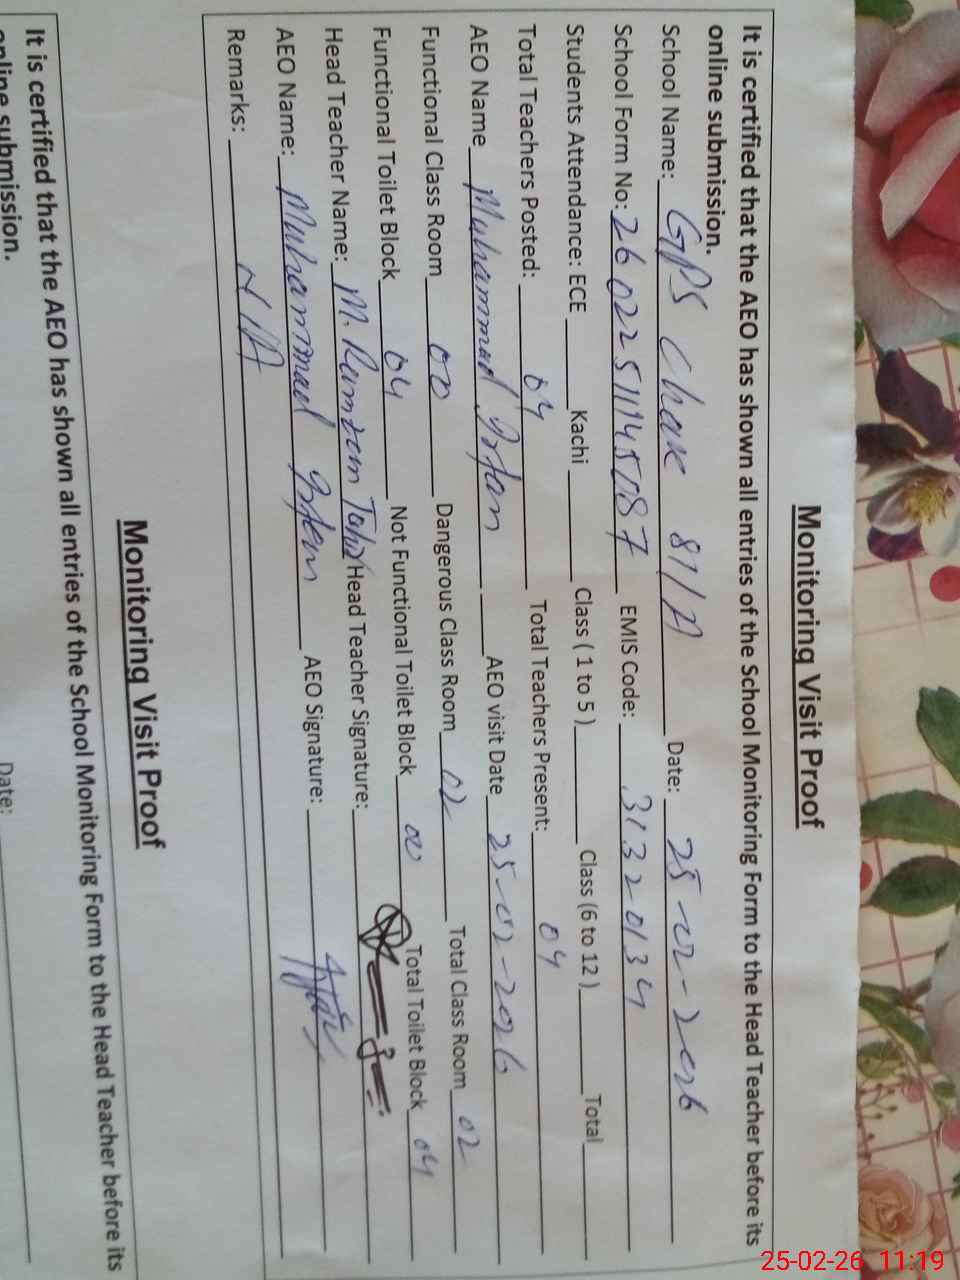 Monitoring Visit Proof
It is certified that the AEO has shown all entries of the School Monitoring Form to the Head Teacher before its
online submission.
School Name: GPS Chak 81/A Date: 25-02-2026
School Form No: 26022511145087 EMIS Code: 31320134
Students Attendance: ECE Kachi Class ( 1 to 5 ) Class (6 to 12 ) Total
Total Teachers Posted: 04 Total Teachers Present: 04
AEO Name Muhammad AEO visit Date 25-02-2026
Functional Class Room 00 Dangerous Class Room 02 Total Class Room 02
Functional Toilet Block 04 Not Functional Toilet Block 00 Total Toilet Block 04
Head Teacher Name: M. Head Teacher Signature:
AEO Name: Muhammad AEO Signature:
Remarks:
Monitoring Visit Proof
It is certified that the AEO has shown all entries of the School Monitoring Form to the Head Teacher before its
online submission.
Date:
25-02-26 11:19